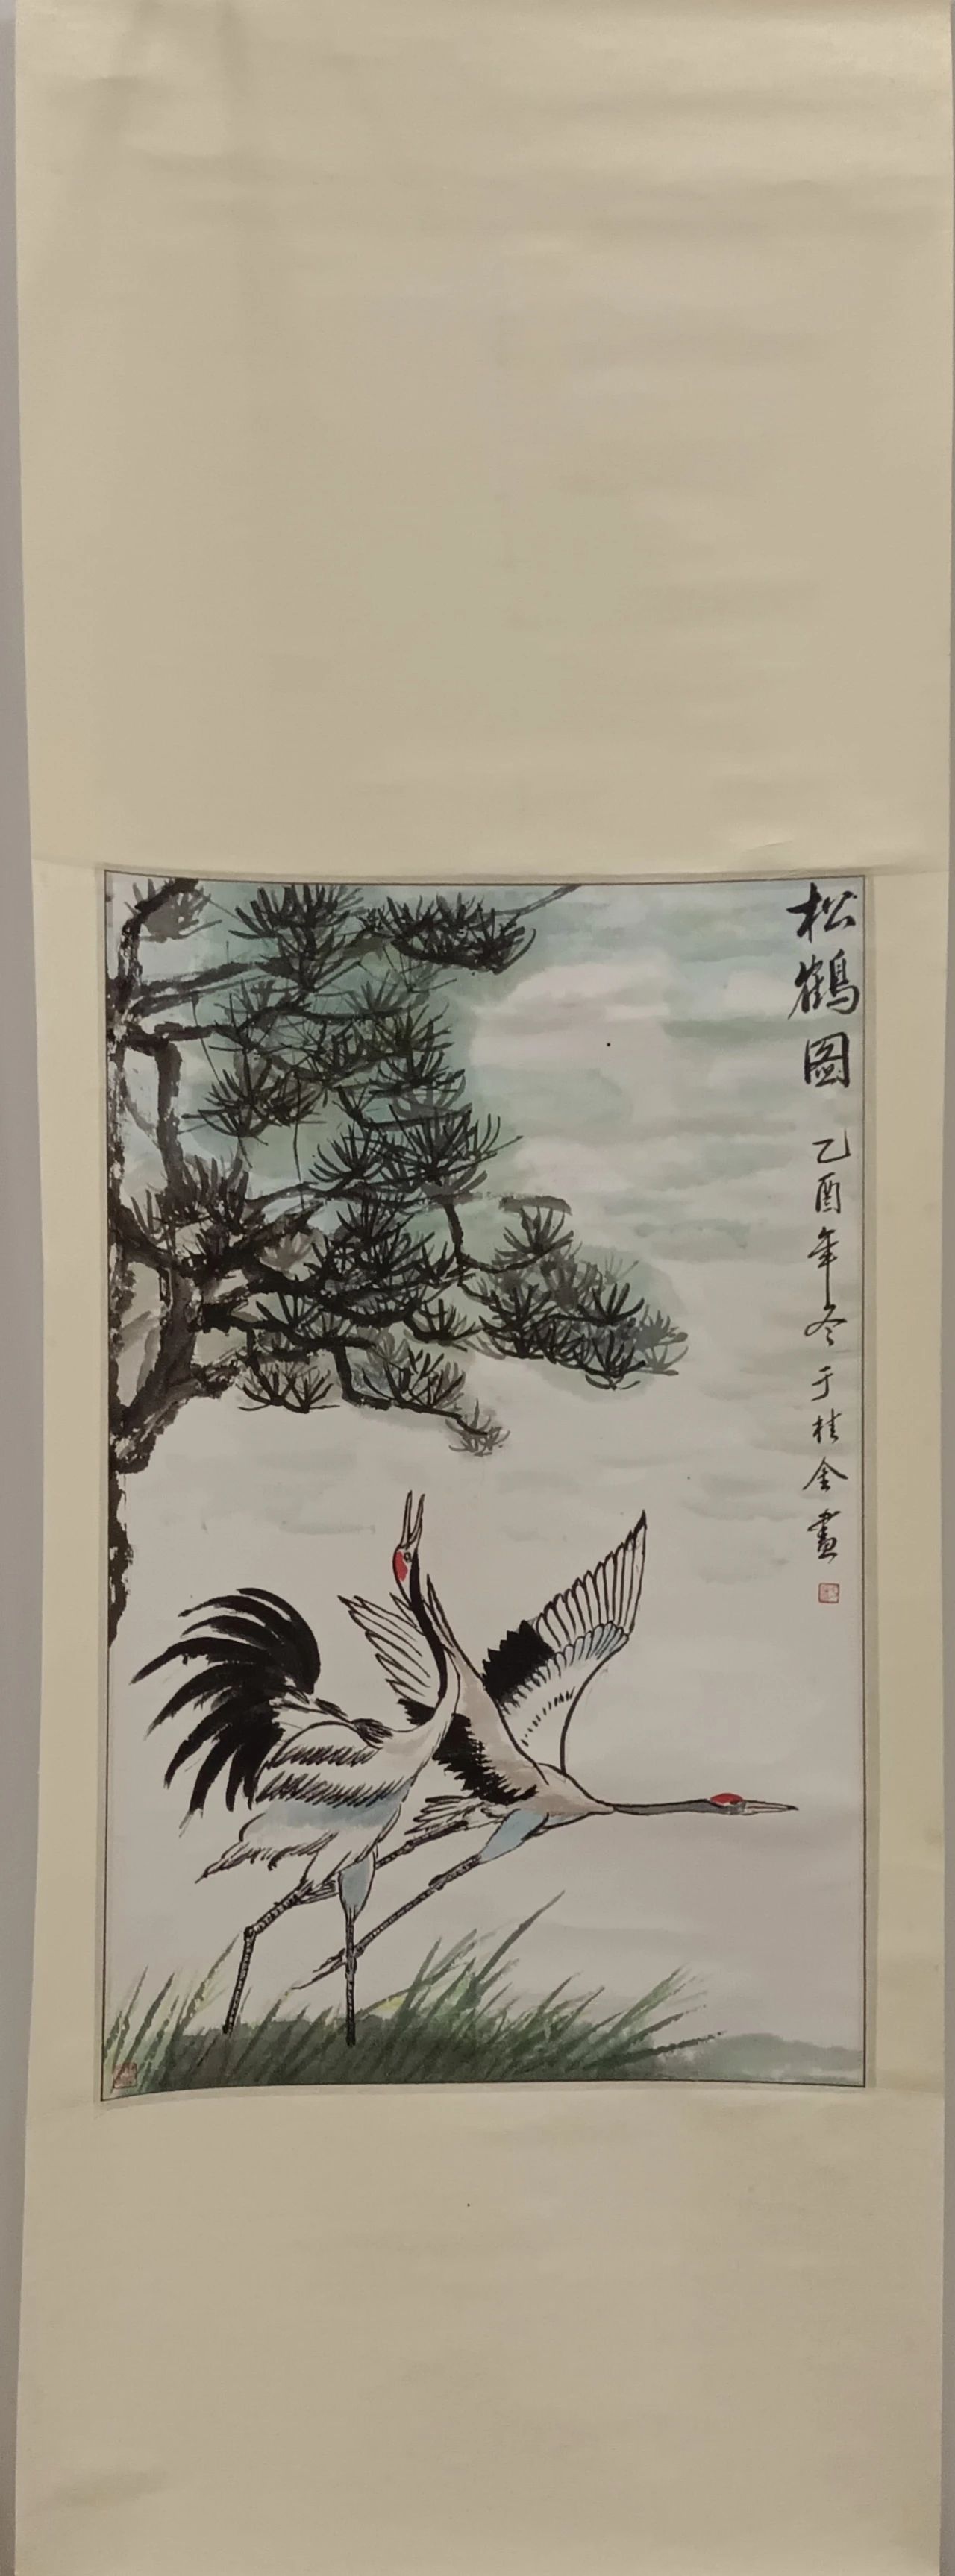 松鶴圖 乙酉年冬于桂金畫